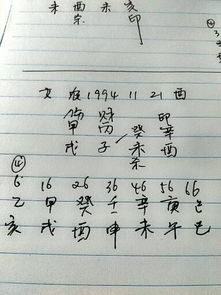 未 酉 未 亥
杀 印
女 1994 11 21 酉
伤 财 印
甲 丙 癸 辛
戌 子 未 酉
杀
④
6 16 26 36 46 56 66
乙 甲 癸 壬 辛 庚 己
亥 戌 酉 申 未 午 巳